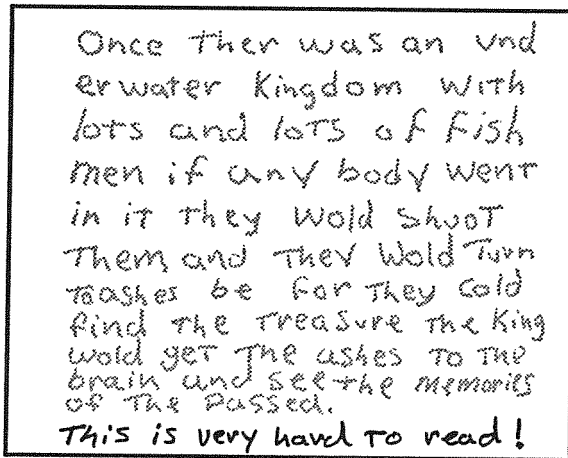 Once Ther was an und
erwater Kingdom with
lots and lots of fish
men if any body went
in it They wold shoot
Them and They wold Turn
Toashes be for They cold
find The Treasure The King
wold get The ashes To The
brain and see the memories
of The Passed.
This is very hard To read!